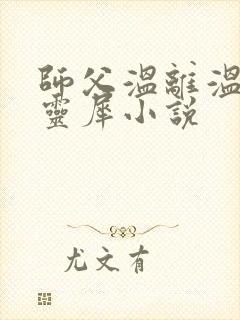 師父溫離溫
靈犀小說
尤文有